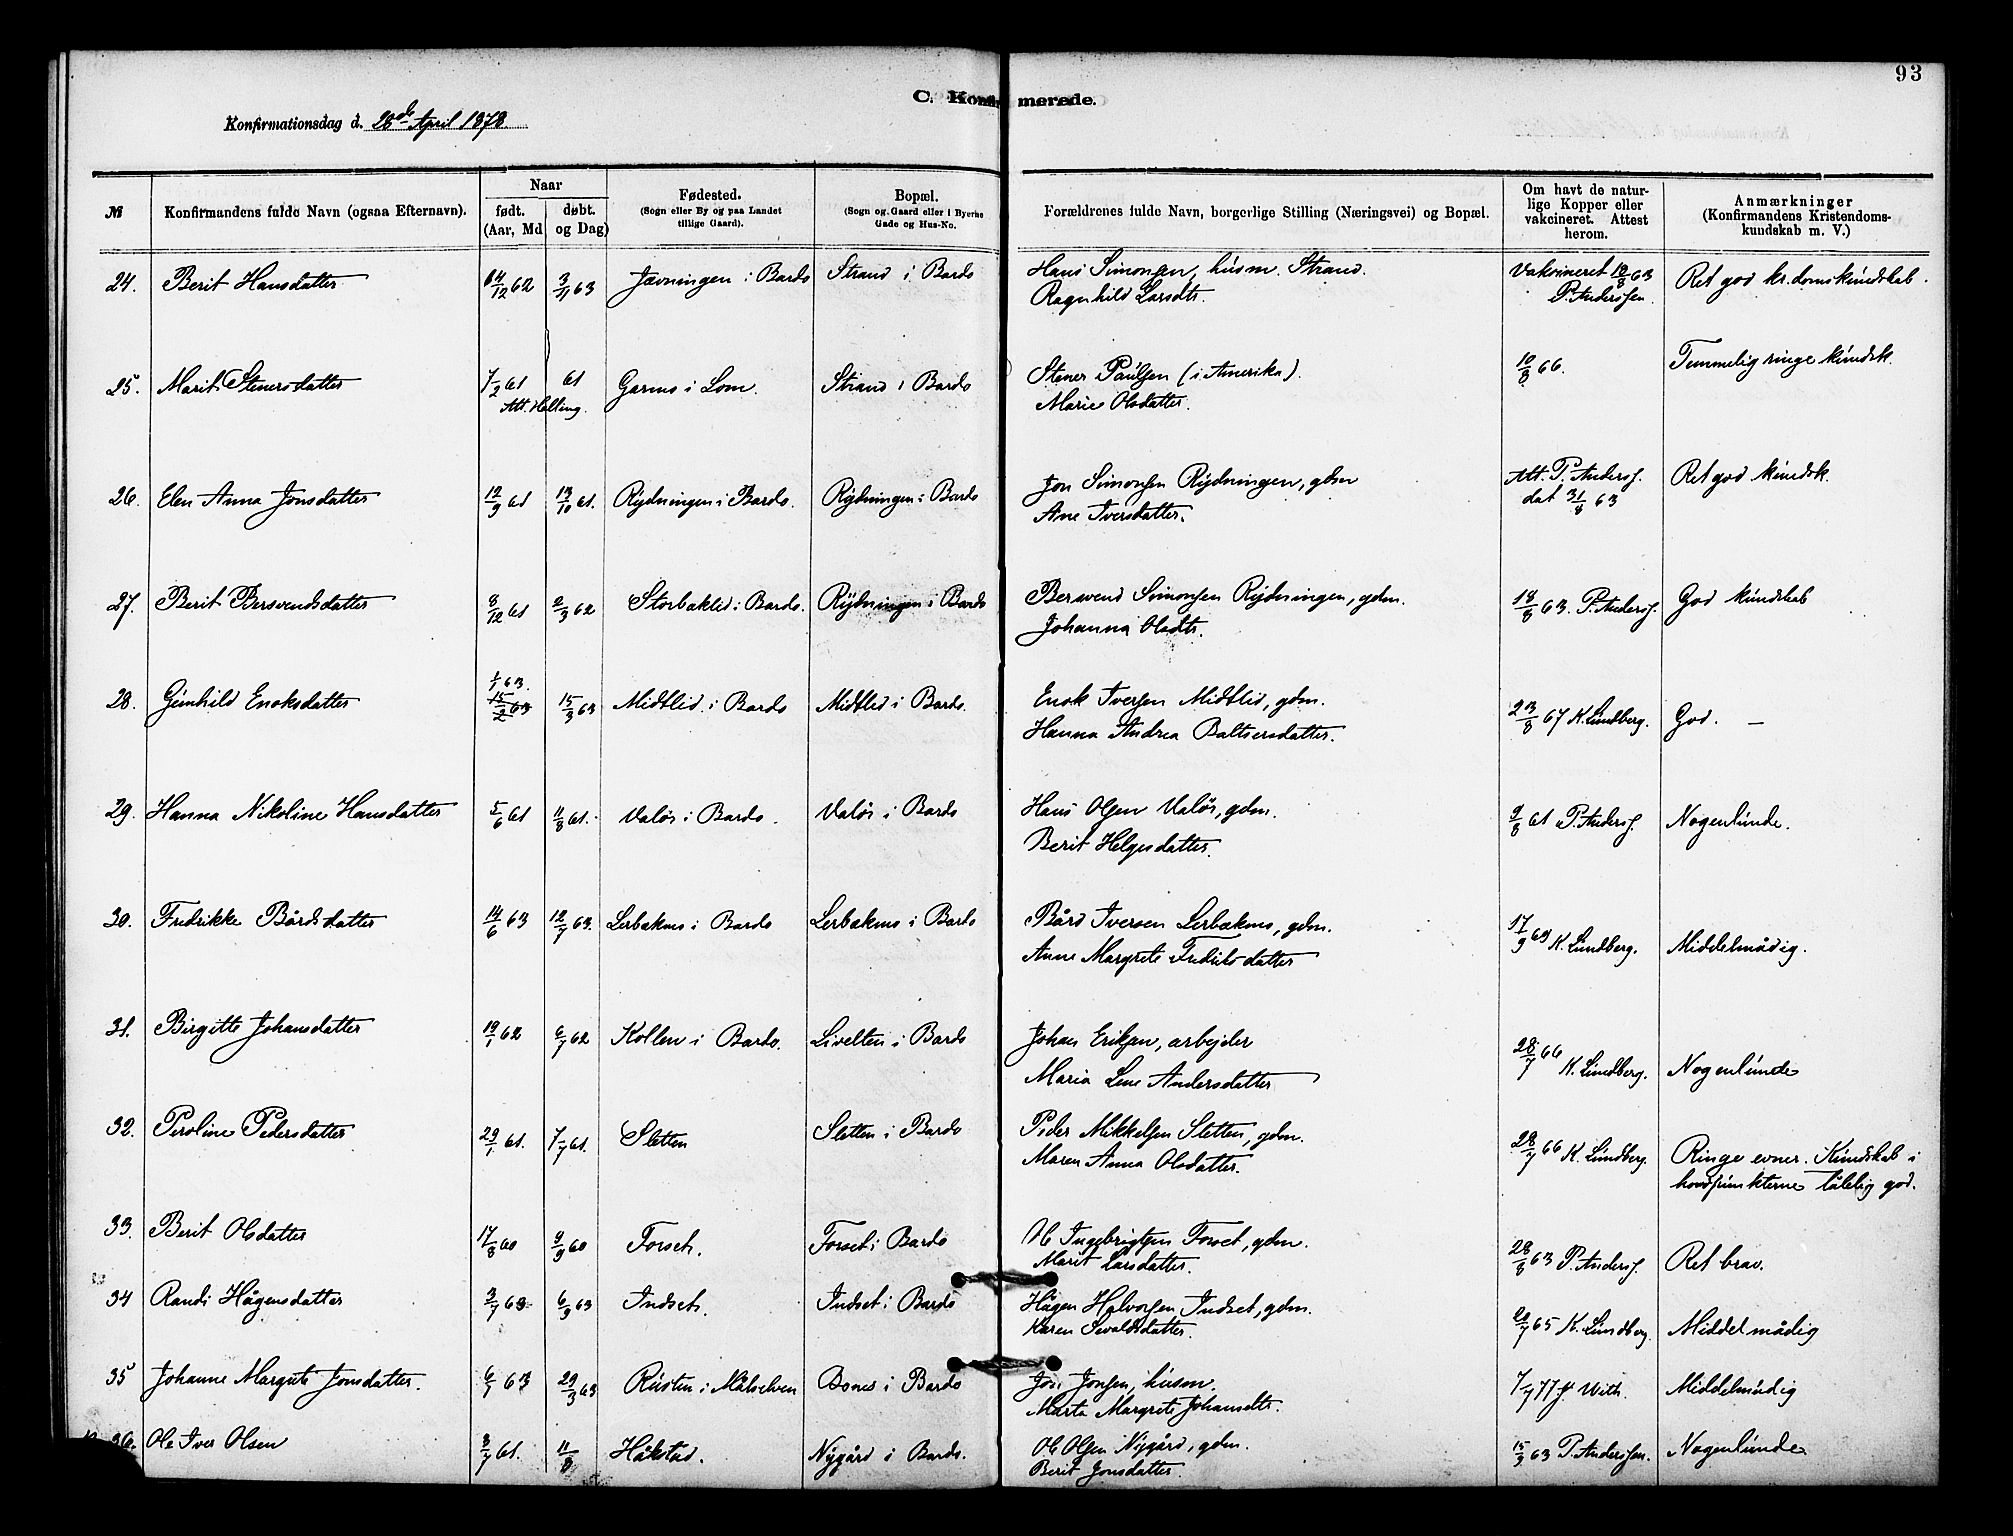 93
C. Konfirmerede.
Konfirmationsdag d. 28de April 1878.
№ Konfirmandens fulde Navn (ogsaa Efternavn). Naar født. (Aar, Md. døbt. og Dag) Fødested. (Sogn eller By og paa Landet tillige Gaard). Bopæl. (Sogn og Gaard eller i Byerne Gade og Hus-No. Forældrenes fulde Navn, borgerlige Stilling (Næringsvei) og Bopæl. Om havt de naturlige Kopper eller vakcineret. Attest herom. Anmærkninger (Konfirmandens Kristendomskundskab m. V.)
24. Berit Hansdatter 14/12 62 3/11 63 Jævningen i Bardo Strand i Bardo Hans Simonsen, husm. Strand. Vakcineret 18/8 63 Ret god kr.domskundskab.
Ragnhild Larsdtr. P. Anderssen
25. Marit Stenersdatter 7/2 61 61 Garmo i Lom. Strand i Bardo Stener Paulsen (i Amerika). 10/8 66. Temmelig ringe kundsk.
Att. Helling. Marie Olsdatter.
26. Elen Anna Jonsdatter 12/9 61 13/10 61. Rydningen i Bardo. Rydningen i Bardo Jon Simonsen Rydningen, gdm Att. P. Anderss. Ret god kundsk.
Ane Iversdatter. dat 31/8 63
27. Berit Bersvendsdatter 8/12 61 2/3 62 Storbaklid i Bardo. Rydningen i Bardo Bersvend Simonsen Rydningen, gdm. 18/8 63. P. Anderss. God kundskab
Johanna Olsdtr.
28. Gunhild Enoksdatter 1/1 63. 15/2 63 15/3 63 Midtlid i Bardo Midtlid i Bardo. Enok Iversen Midtlid, gdm. 23/8 67 K. Lundberg. God. —
Hanna Andrea Baltsersdatter.
29. Hanna Nikoline Hansdatter 5/6 61 11/8 61. Valøs i Bardo. Valøs i Bardo Hans Olsen Valøs, gdm. 9/8 61 P. Anderss. Nogenlunde.
Berit Helgesdatter.
30. Fredrikke Bårdsdatter 14/6 63 12/7 63. Lerbakmo i Bardo Lerbakmo i Bardo Bård Iversen Lerbakmo, gdm. 17/9 69 K. Lundberg. Middelmådig.
Anne Margrete Fredriksdatter
31. Birgitte Johansdatter 19/1 62 6/7 62 Kollen i Bardo. Livelten i Bardo Johan Eriksen, arbejder 28/7 66 K. Lundberg. Nogenlunde
Maria Lene Andersdatter
32. Peroline Pedersdatter 29/1 61. 7/7 61. Sletten Sletten i Bardo Peder Mikkelsen Sletten, gdm. 28/7 66 K. Lundberg. Ringe evner. Kundskab i
Maren Anna Olsdatter. hovedpunkterne tålelig god.
33. Berit Olsdatter 17/8 60 9/9 60 Forset. Forset i Bardo Ol Ingebrigtsen Forset, gdm. 28/8 63 P. Anderss. Ret brav.
Marit Larsdatter.
34 Randi Hågensdatter 3/7 63 6/9 63 Indset. Indset i Bardo Hågen Halvorsen Indset, gdm. 29/7 65 K. Lundberg. Middelmådig
Karen Sivaldsdatter.
35 Johanne Margrete Jonsdatter. 6/1 63 29/3 63 Rusten i Målselven Bones i Bardo Jon Jonsen, husm. 7/7 77 With. Middelmådig
Marta Margrete Johansdtr.
36. Ole Iver Olsen 3/7 61. 11/8 Håkstad. Nygård i Bardo. Ol Olsen Nygård, gdm. 15/3 63 P. Anderssen. Nogenlunde
Berit Jonsdatter.